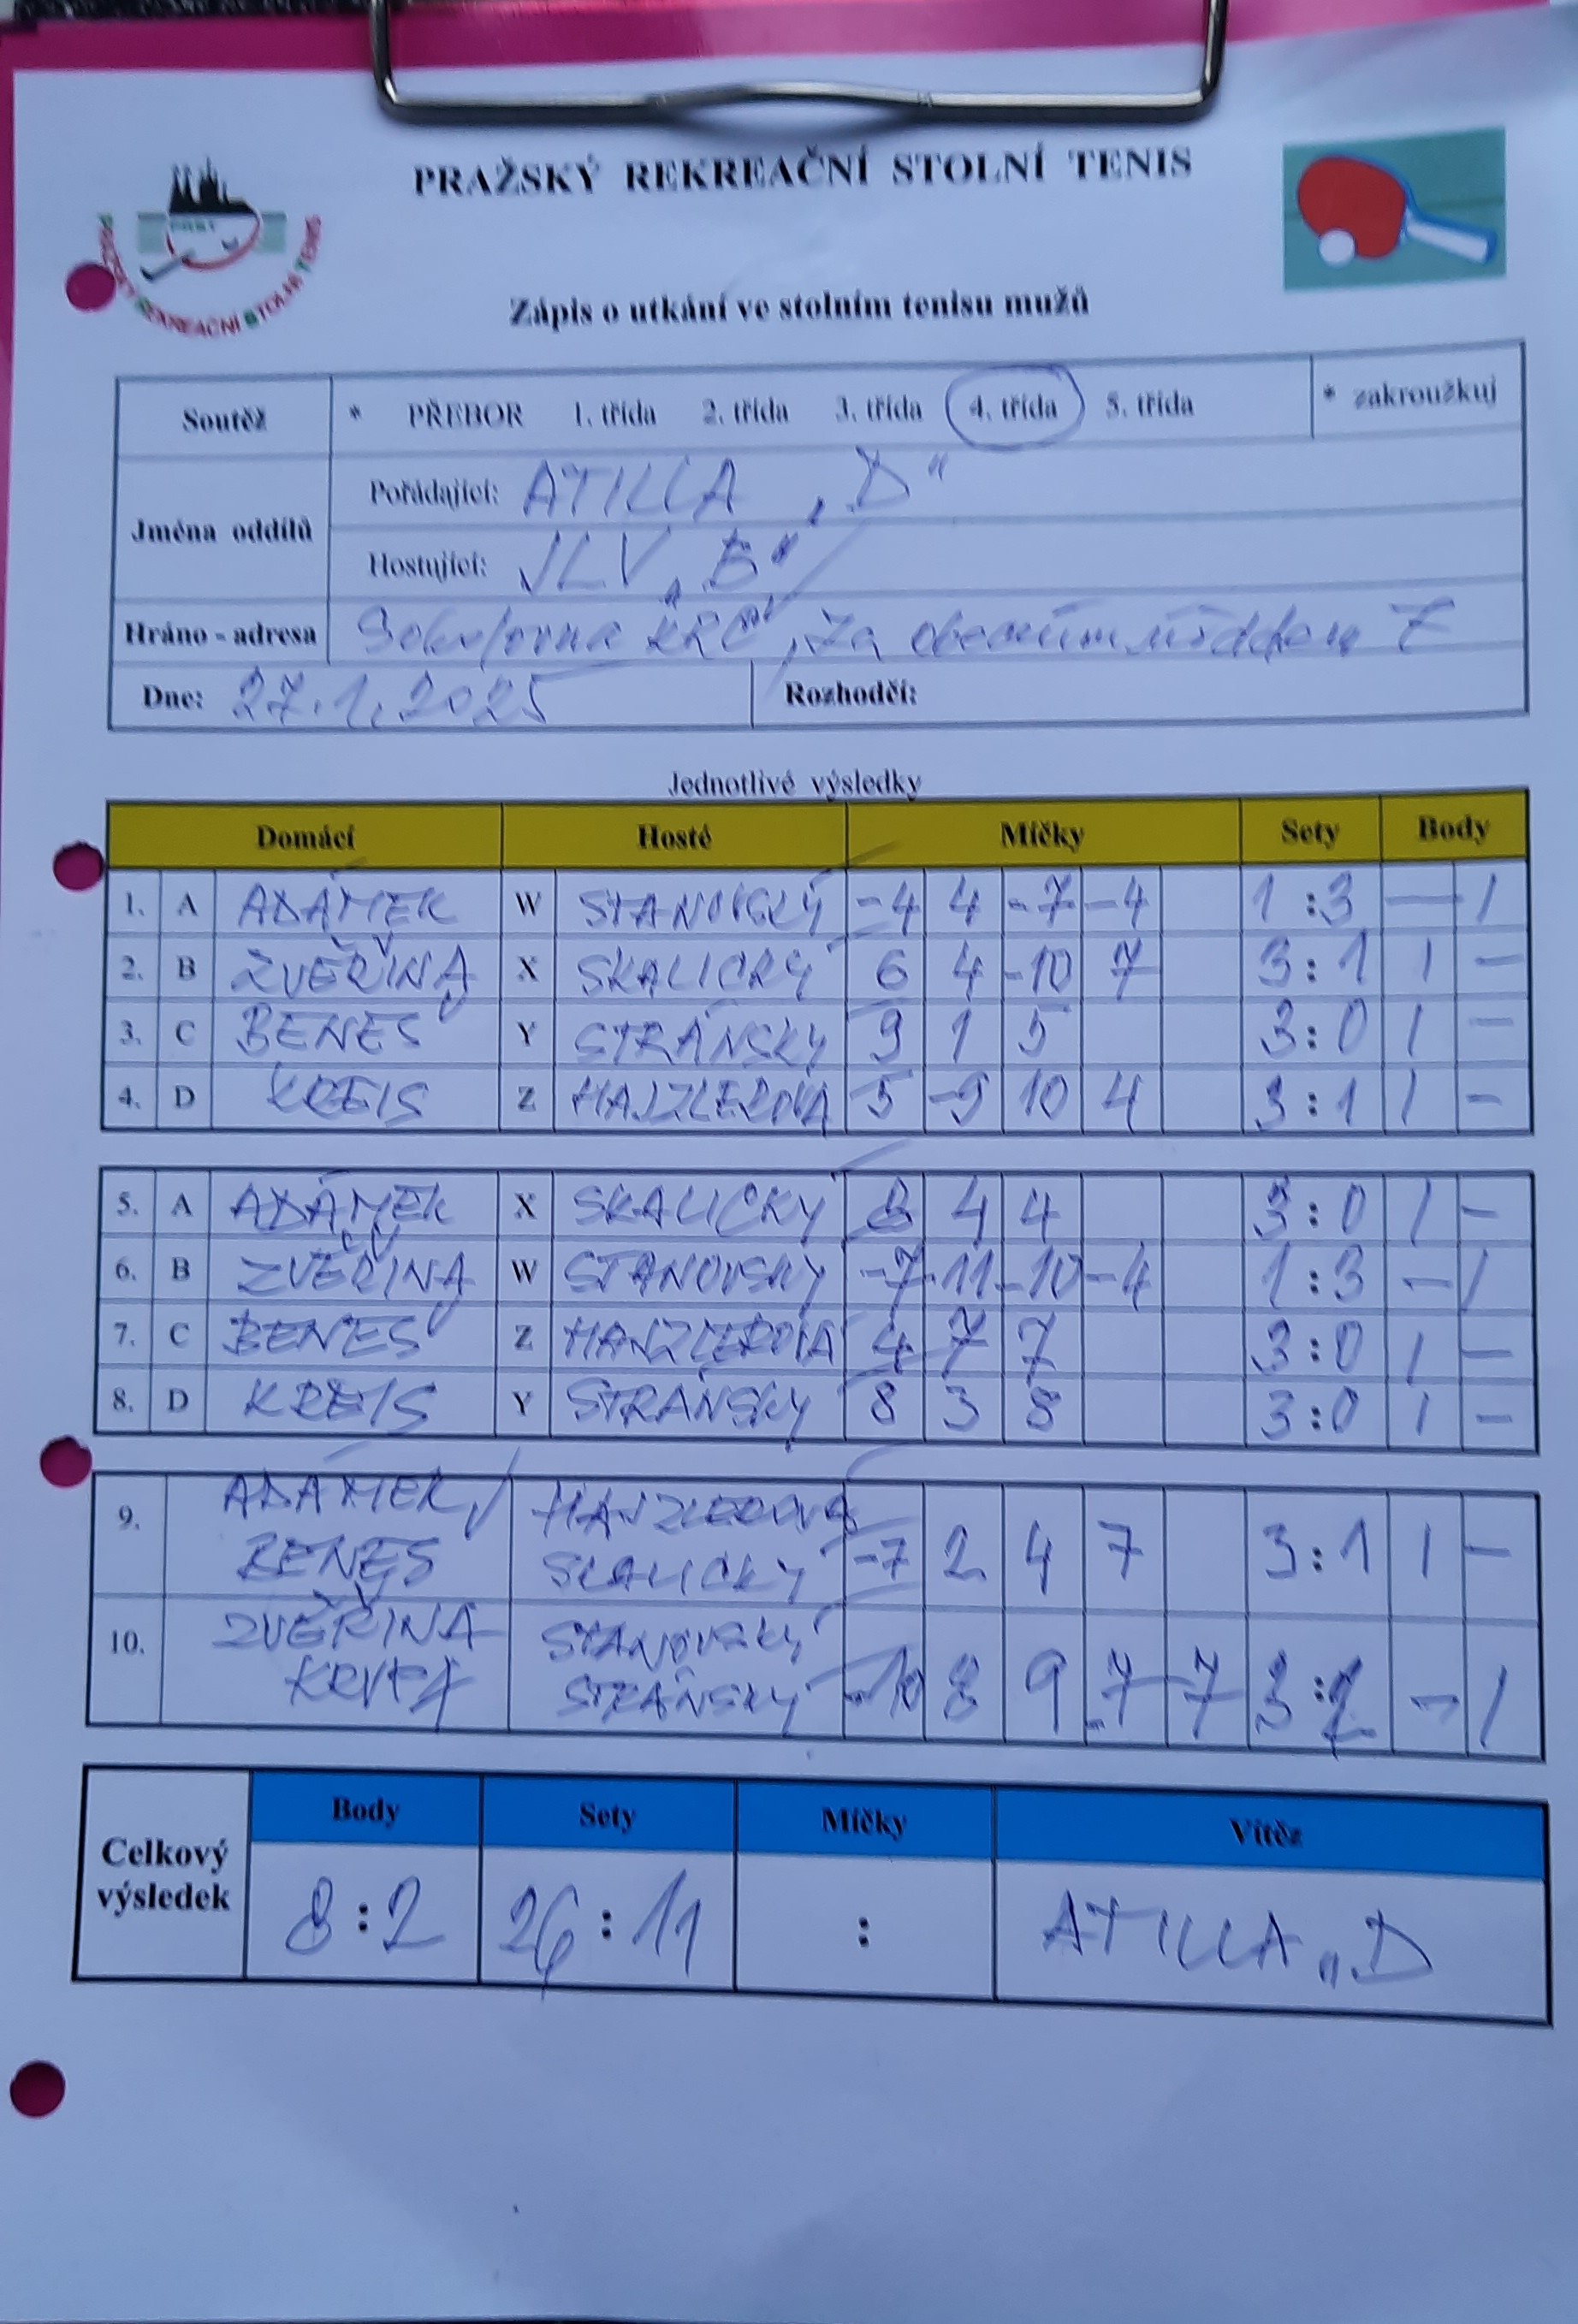 PRAŽSKÝ REKREAČNÍ STOLNÍ TENIS
PRAŽSKÝ REKREAČNÍ STOLNÍ TENIS
Zápis o utkání ve stolním tenisu mužů
Soutěž * PŘEBOR 1. třída 2. třída 3. třída 4. třída 5. třída * zakroužkuj
Jména oddílů
Pořádající: ATILLA „D“
Hostující: JLV „B“
Hráno - adresa Sokolovna KRČ, Za obecním úřadem 7
Dne: 27.1.2025 Rozhodčí:
Jednotlivé výsledky
Domácí Hosté Míčky Sety Body
1. A ADÁMEK W STANOVSKÝ -4 4 -7 -4 1 : 3 — 1
2. B ZVĚŘINA X SKALICKÝ 6 4 -10 7 3 : 1 1 —
3. C BENEŠ Y STRÁNSKÝ 9 1 5 3 : 0 1 —
4. D KREIS Z HAJZLEROVÁ 5 -9 10 4 3 : 1 1 —
5. A ADÁMEK X SKALICKÝ 8 4 4 3 : 0 1 —
6. B ZVĚŘINA W STANOVSKÝ -7 -11 -10 -4 1 : 3 — 1
7. C BENEŠ Z HANZLEROVÁ 4 7 7 3 : 0 1 —
8. D KREIS Y STRÁNSKÝ 8 3 8 3 : 0 1 —
9. ADÁMEK / HANZLEROVÁ
BENEŠ SKALICKÝ -7 2 4 7 3 : 1 1 —
10. ZVĚŘINA STANOVSKÝ
STRÁNSKÝ -10 8 9 -7 -7 3 : 2 — 1
Celkový výsledek
Body Sety Míčky Vítěz
8 : 2 26 : 11 : ATILLA „D